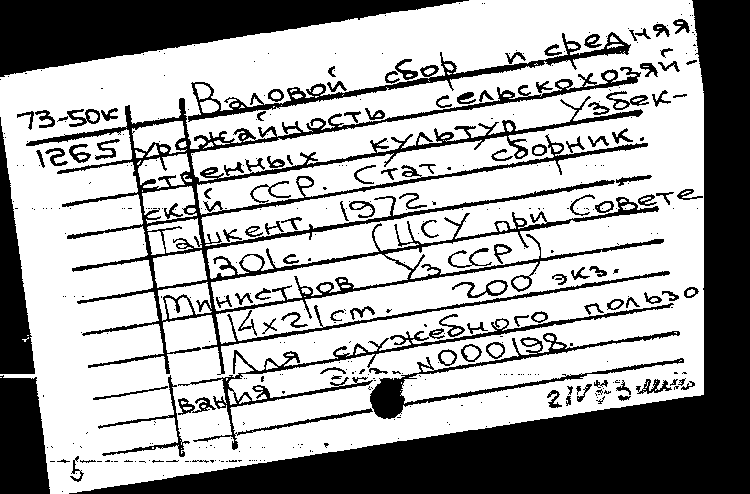 Валовой сбор и средняя
73-50к
урожайность сельскохозяй-
1265
ственных культур Узбек-
ской ССР. Стат. сборник.
Ташкент, 1972.
301с. (ЦСУ при Совете
Министров УзССР).
14х21см. 200 экз.
Для служебного пользо
вания. Экз. N000198.
2/IV73
5